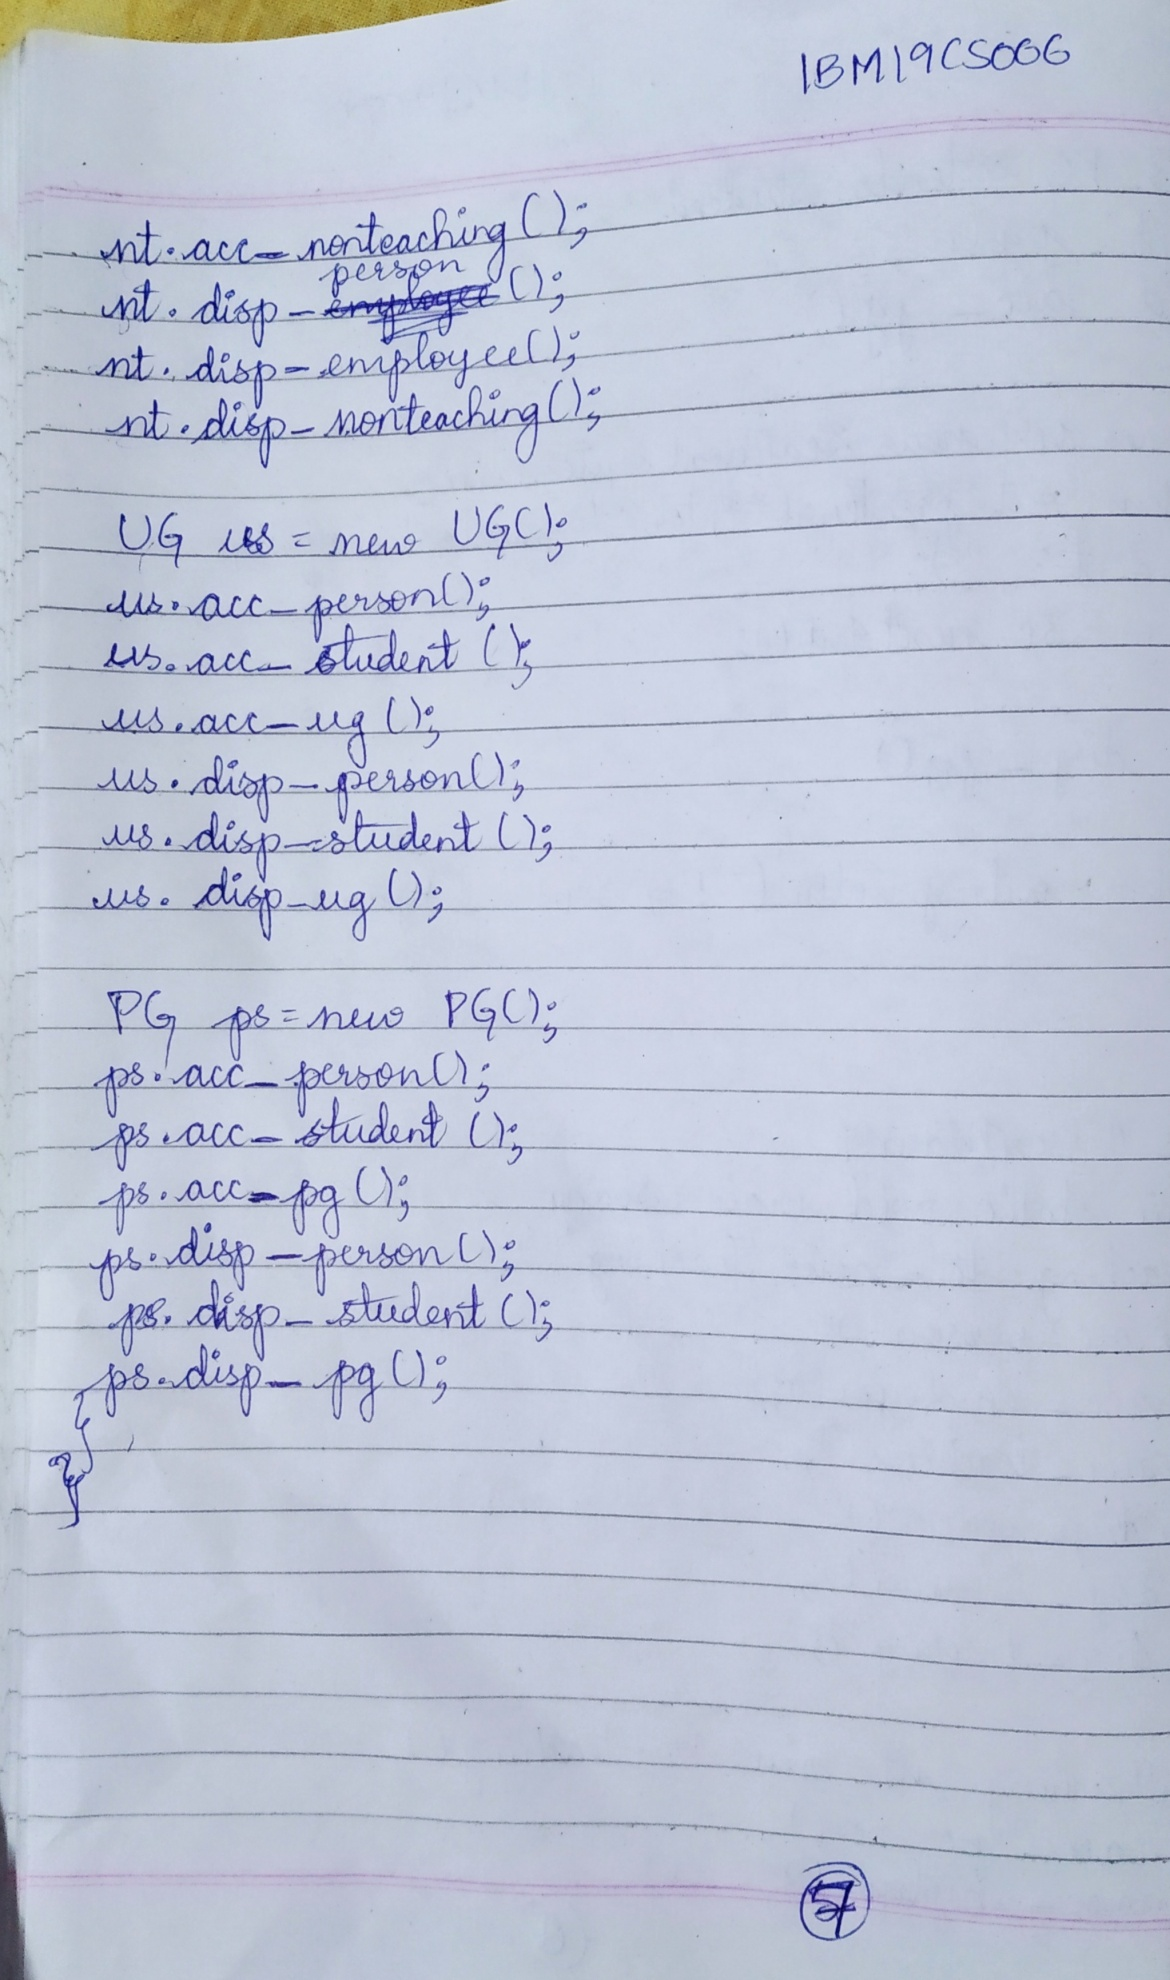 1BM19CS006
nt.acc_nonteaching();
nt.disp_person();
nt.disp_employee();
nt.disp_nonteaching();
UG us = new UG();
us.acc_person();
us.acc_student();
us.acc_ug();
us.disp_person();
us.disp_student();
us.disp_ug();
PG ps = new PG();
ps.acc_person();
ps.acc_student();
ps.acc_pg();
ps.disp_person();
ps.disp_student();
ps.disp_pg();
}
}
7